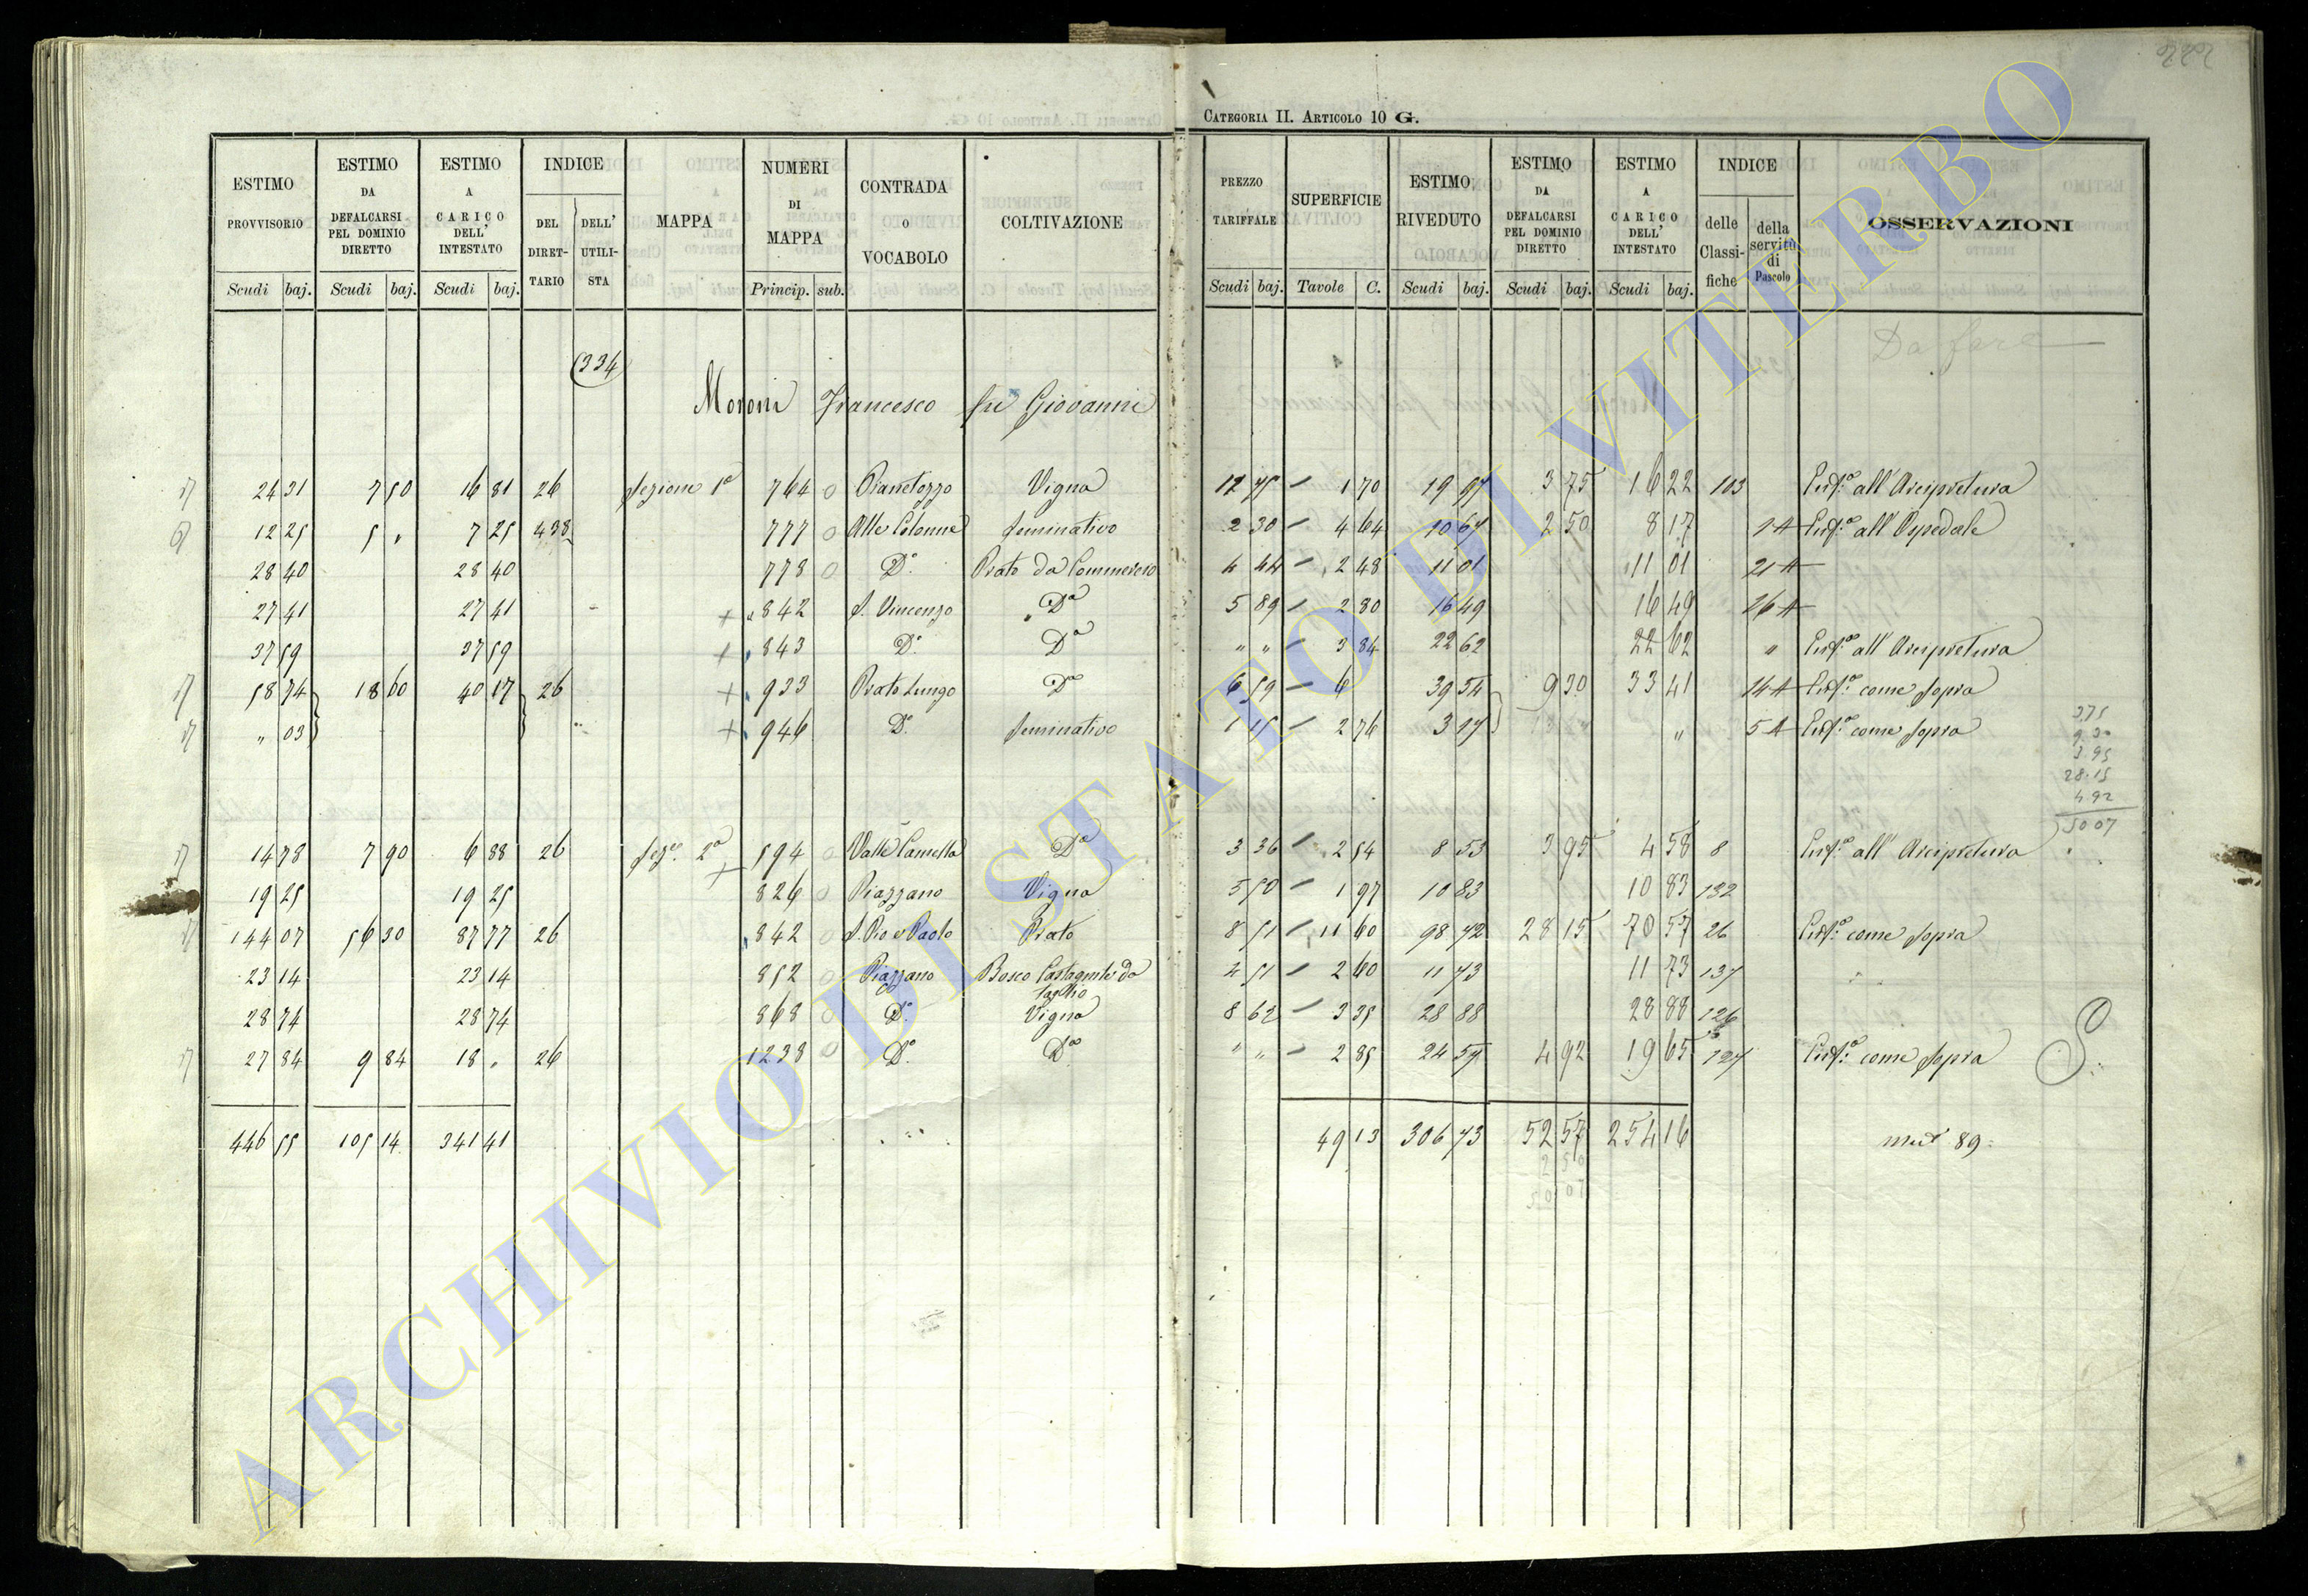 CATEGORIA II. ARTICOLO 10 G.
ESTIMO PROVVISORIO Scudi baj.
ESTIMO DA DEFALCARSI PEL DOMINIO DIRETTO Scudi baj.
ESTIMO A CARICO DELL' INTESTATO Scudi baj.
INDICE DEL DIRETTARIO DELL' UTILISTA
MAPPA
NUMERI DI MAPPA Princip. sub.
CONTRADA O VOCABOLO
COLTIVAZIONE
PREZZO TARIFFALE Scudi baj.
SUPERFICIE Tavole C.
ESTIMO RIVEDUTO Scudi baj.
ESTIMO DA DEFALCARSI PEL DOMINIO DIRETTO Scudi baj.
ESTIMO A CARICO DELL' INTESTATO Scudi baj.
INDICE delle Classifiche della servitù di Pascolo
OSSERVAZIONI
Da fare
334
Moroni Francesco fu Giovanni
24 31 7 50 16 81 26 Sezione 1ª 764 0 Pianetozzo Vigna 1 70 19 97 3 75 16 22 103 Enf.ª all'Arcipretura
12 25 5 " 7 25 438 777 0 Alle Colonne Seminativo 2 30 4 64 10 67 2 50 8 17 Enf.ª all'Ospedale
28 40 28 40 778 0 D.º Prato da Commercio 4 44 2 48 11 01 11 01 21 A
27 41 27 41 842 S. Vincenzo Dº 5 89 2 80 16 49 16 49 26 A
37 59 37 59 843 D.º Dº " " 3 84 22 62 22 62 " Enf.ª all'Arcipretura
58 74 18 60 40 17 26 933 Prato Lungo Dº 6 59 6 39 54 9 30 33 41 14 A Enf.ª come sopra
" 03 946 D.º Seminativo 1 15 2 76 3 17 " 5 A Enf.ª come sopra
3.75
9.30
3.95
28.15
4.92
50 07
14 78 7 90 6 88 26 Sez.e 2ª 594 0 Valle Camella Dº 3 36 2 54 8 53 3 95 4 58 8 Enf.ª all'Arcipretura
19 25 19 25 826 0 Piazzano Vigna 5 50 1 97 10 83 10 83 132
144 07 56 30 87 77 26 842 0 S. Pio e Paolo Prato 8 51 11 60 98 72 28 15 70 57 26 Enf.ª come sopra
23 14 23 14 852 0 Piazzano Bosco Castagnile da taglio 4 51 2 60 11 73 11 73 137
28 74 28 74 868 0 D.º Vigna 8 62 3 35 28 88 28 88 126
27 84 9 84 18 " 26 1238 0 D.º Dº " " 2 85 24 57 4 92 19 65 127 Enf.ª come sopra
446 55 105 14 341 41 49 13 306 73 52 57 254 16
2 50
50 07
ARCHIVIO DI STATO DI VITERBO